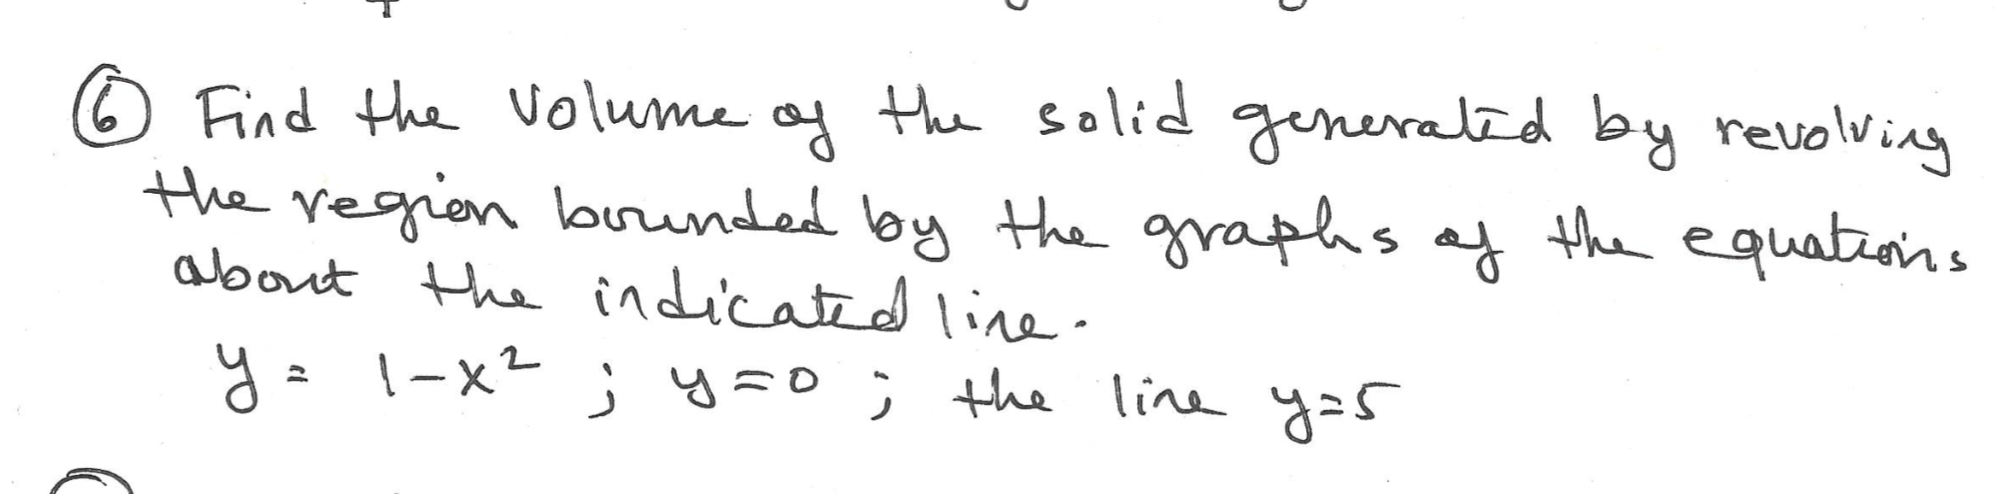 ⑥ Find the volume of the solid generated by revolving
the region bounded by the graphs of the equations
about the indicated line.
y = 1-x² ; y=0 ; the line y=5